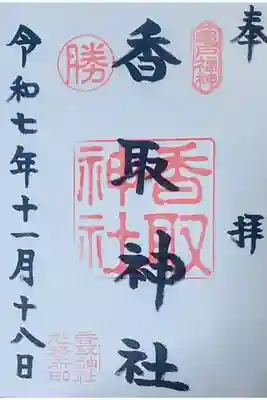 奉拝
亀戸福神
香取神社
香取神社
勝
令和七年十一月十八日
香取神社